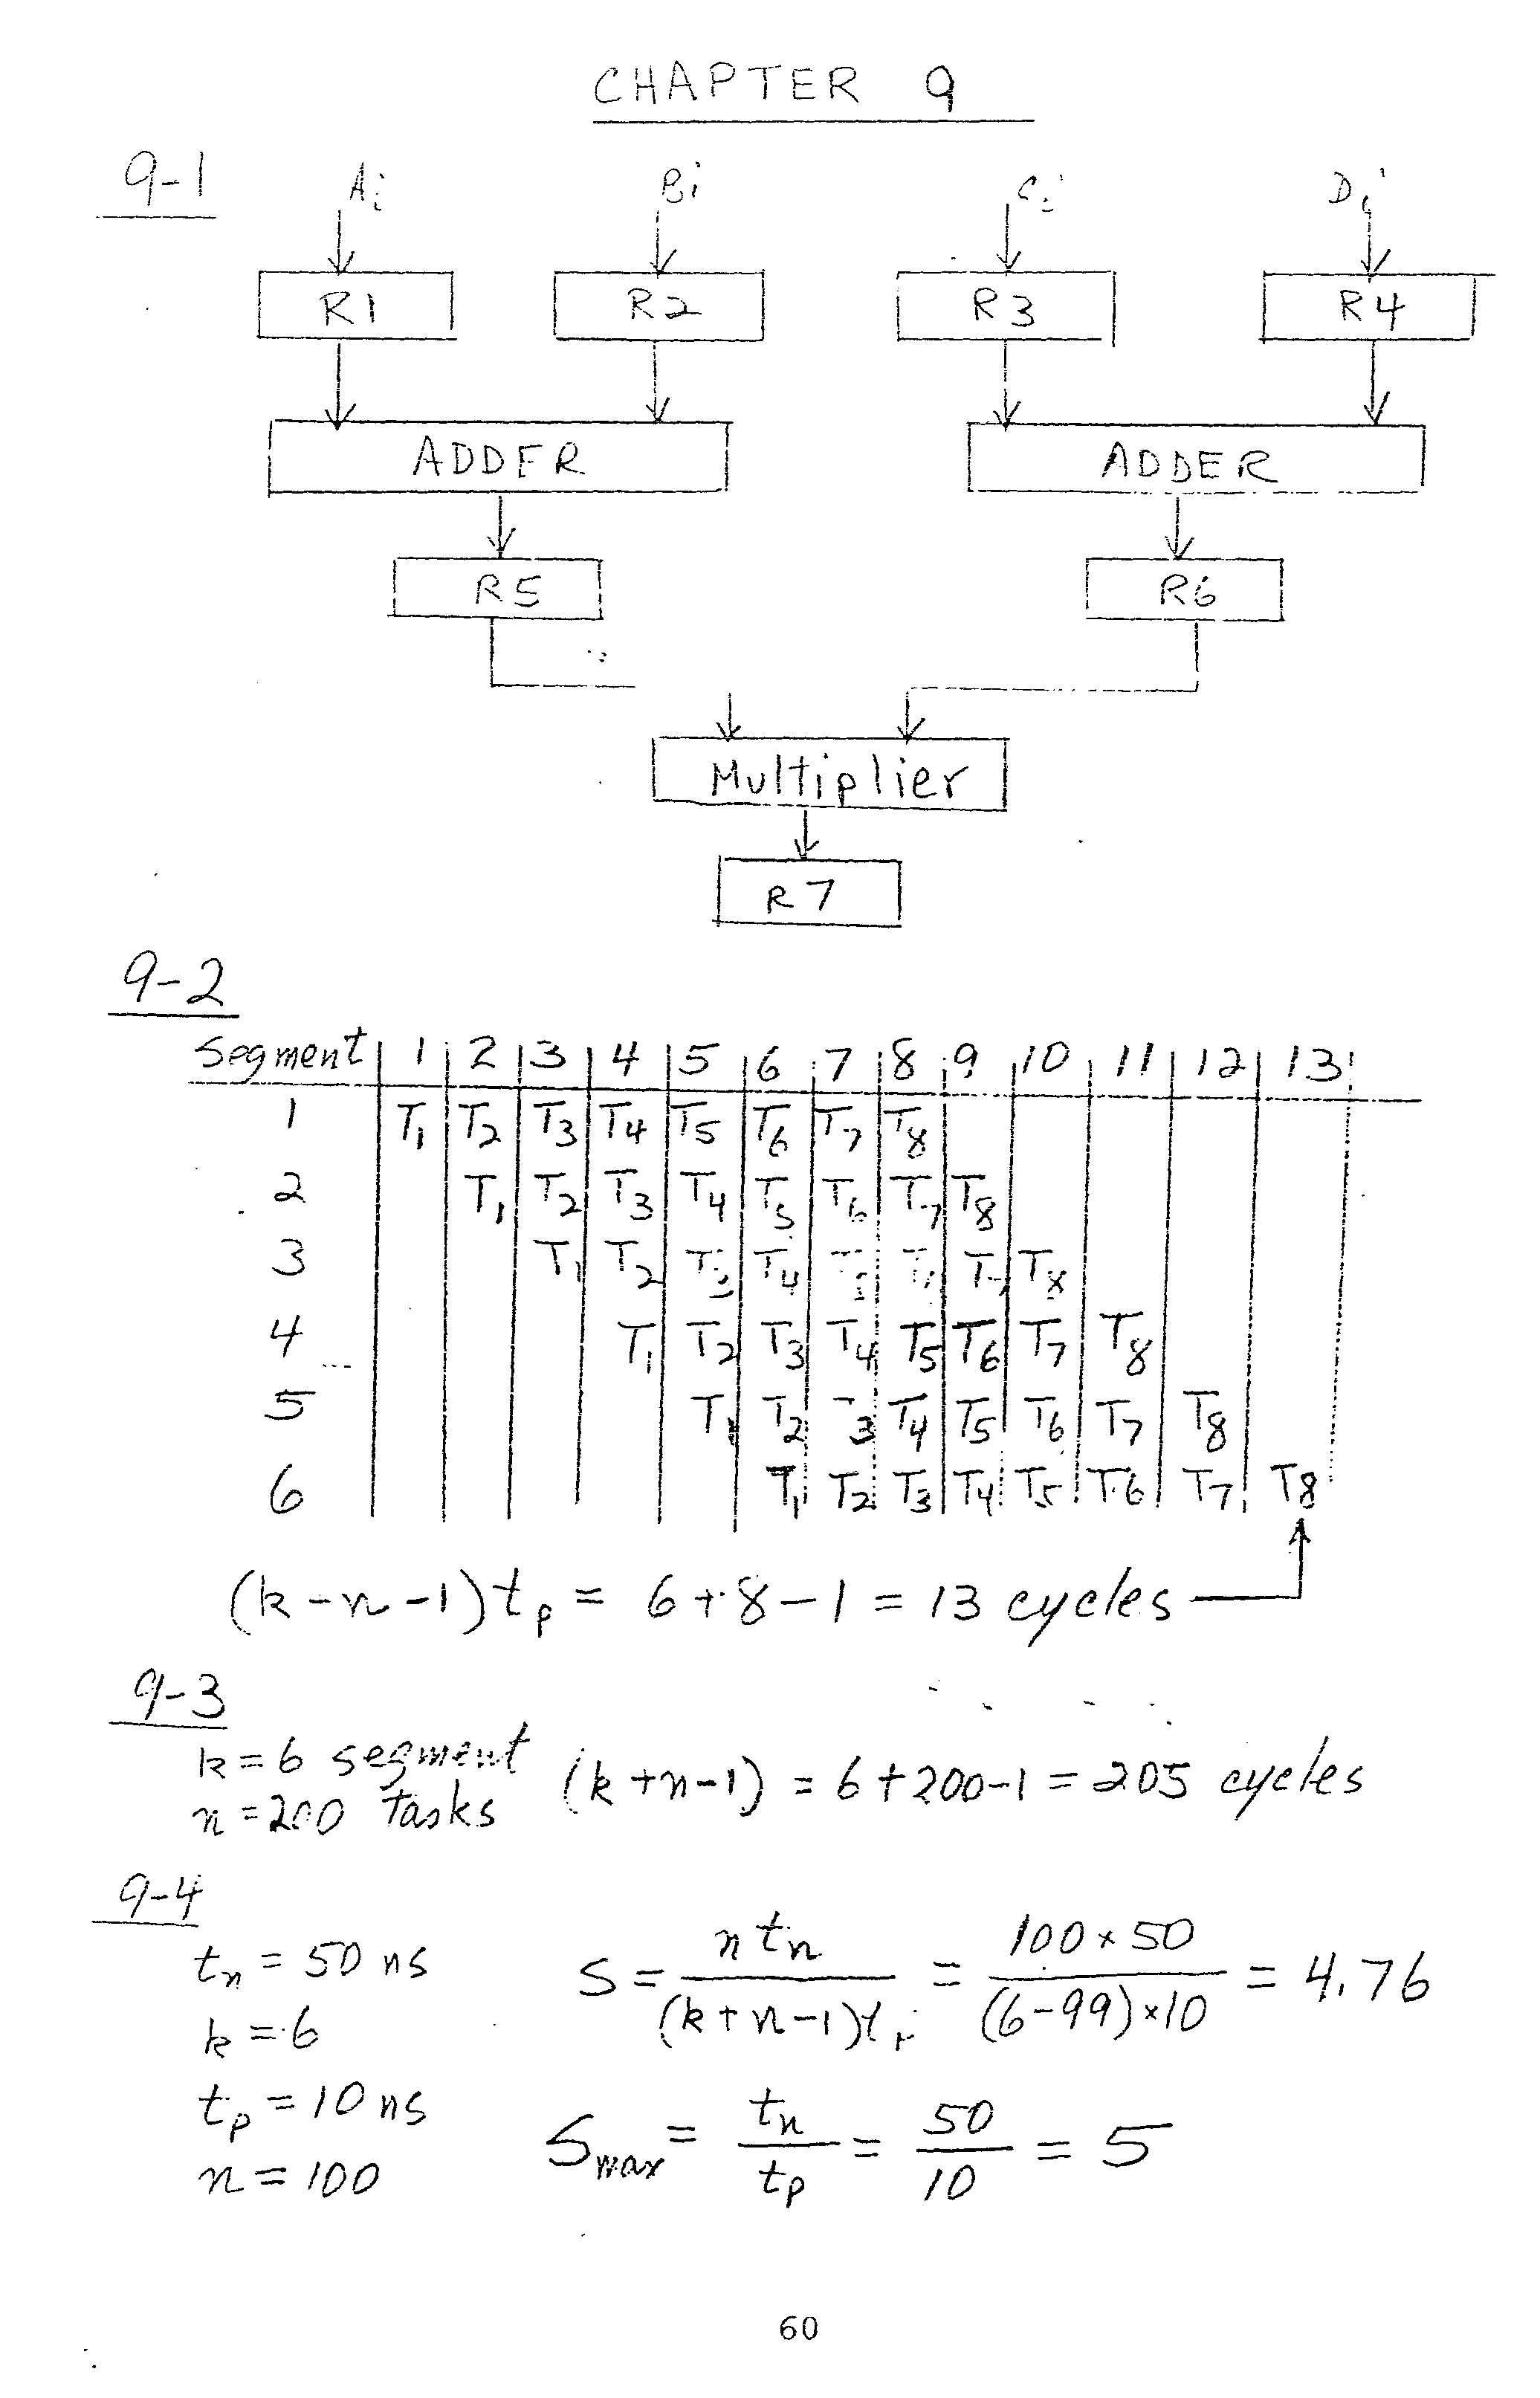 CHAPTER 9
9-1
Ai Bi Ci Di
R1 R2 R3 R4
ADDER ADDER
R5 R6
Multiplier
R7
9-2
Segment 1 2 3 4 5 6 7 8 9 10 11 12 13
1 T1 T2 T3 T4 T5 T6 T7 T8
2 T1 T2 T3 T4 T5 T6 T7 T8
3 T1 T2 T3 T4 T7 T8
4 T1 T2 T3 T4 T5 T6 T7 T8
5 T1 T2 3 T4 T5 T6 T7 T8
6 T1 T2 T3 T4 T5 T6 T7 T8
(k-n-1)tp = 6+8-1 = 13 cycles
9-3
k=6 segment (k+n-1) = 6+200-1 = 205 cycles
n=200 Tasks
9-4
tn = 50 ns S = n tn / (k+n-1)tp = 100×50 / (6-99)×10 = 4.76
k=6
tp = 10 ns Smax = tn / tp = 50 / 10 = 5
n=100
60